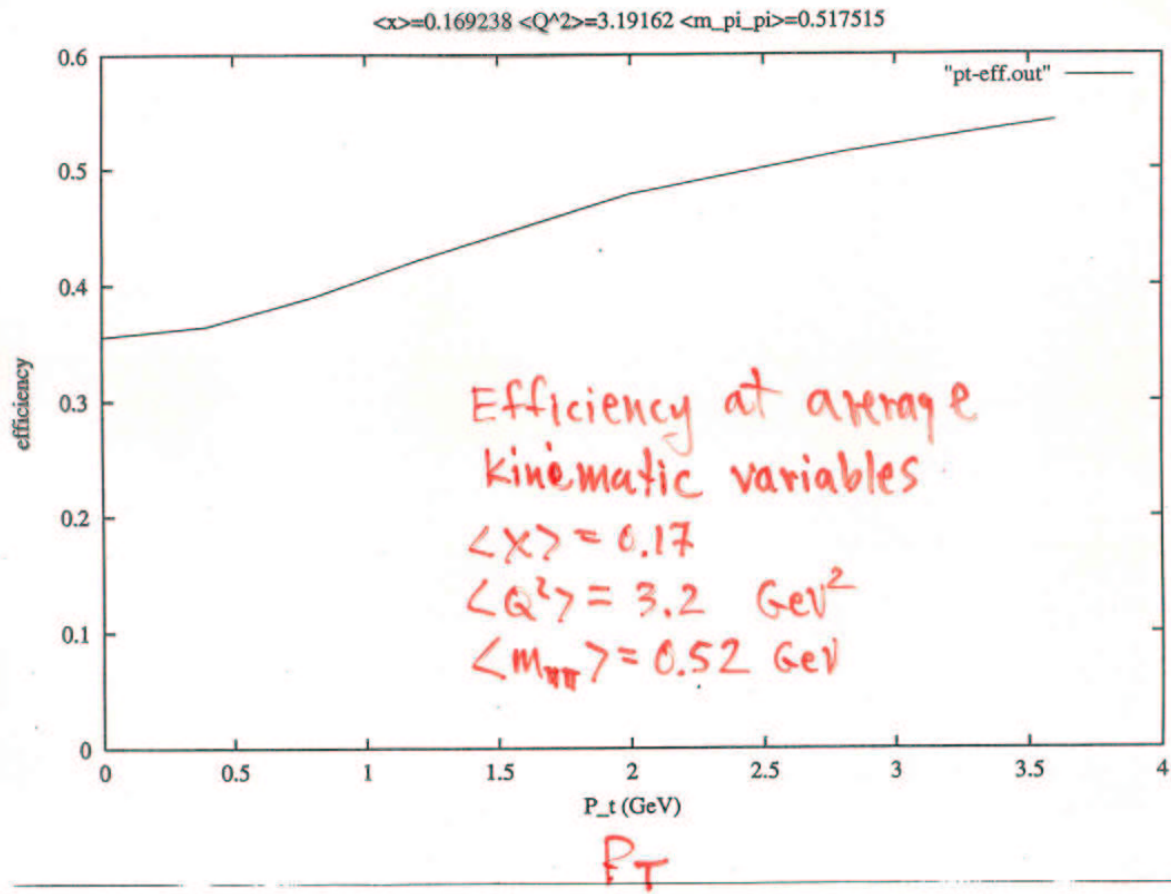 <x>=0.169238 <Q^2>=3.19162 <m_pi_pi>=0.517515
0.6
"pt-eff.out"
0.5
0.4
efficiency
0.3
Efficiency at average
kinematic variables
0.2
<x> = 0.17
<Q²> = 3.2 GeV²
0.1
<mππ> = 0.52 GeV
0
0 0.5 1 1.5 2 2.5 3 3.5 4
P_t (GeV)
PT